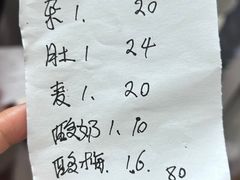 菜1. 20
肚1 24
麦1. 20
酸奶1. 10
酸梅. 16.
80